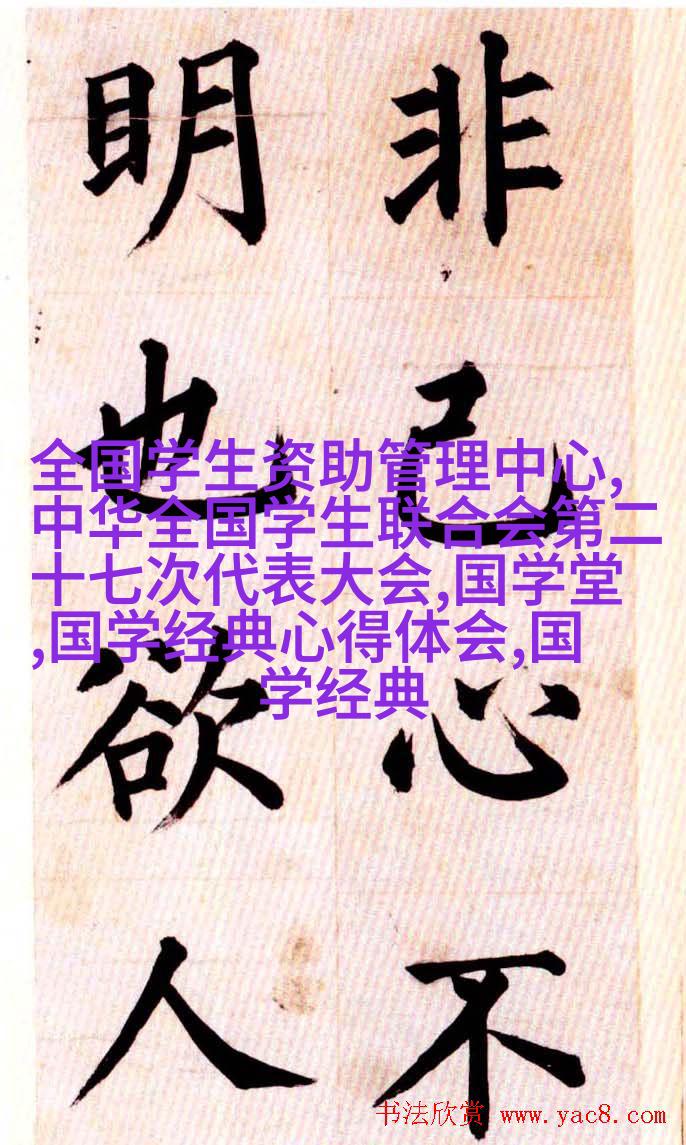 非己心不
明也欲人
全国学生资助管理中心,
中华全国学生联合会第二
十七次代表大会,国学堂
,国学经典心得体会,国
学经典
书法欣赏 www.yac8.com